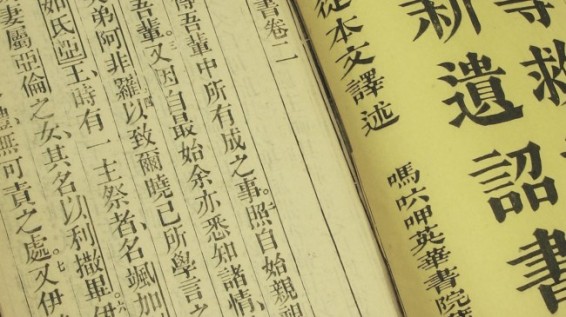 等救
新遺詔書
從本文譯述
嗎𠯈呷英華書院
書卷二
傳吾輩中所有成之事。照自始親
吾輩。又因自最始余亦悉知諸情
弟阿非羅以致爾曉已所學言之
如氏亞王、時有一主祭者、名颯加
妻屬亞倫之女、其名以利撒畢。伊
無可責之處。七又伊